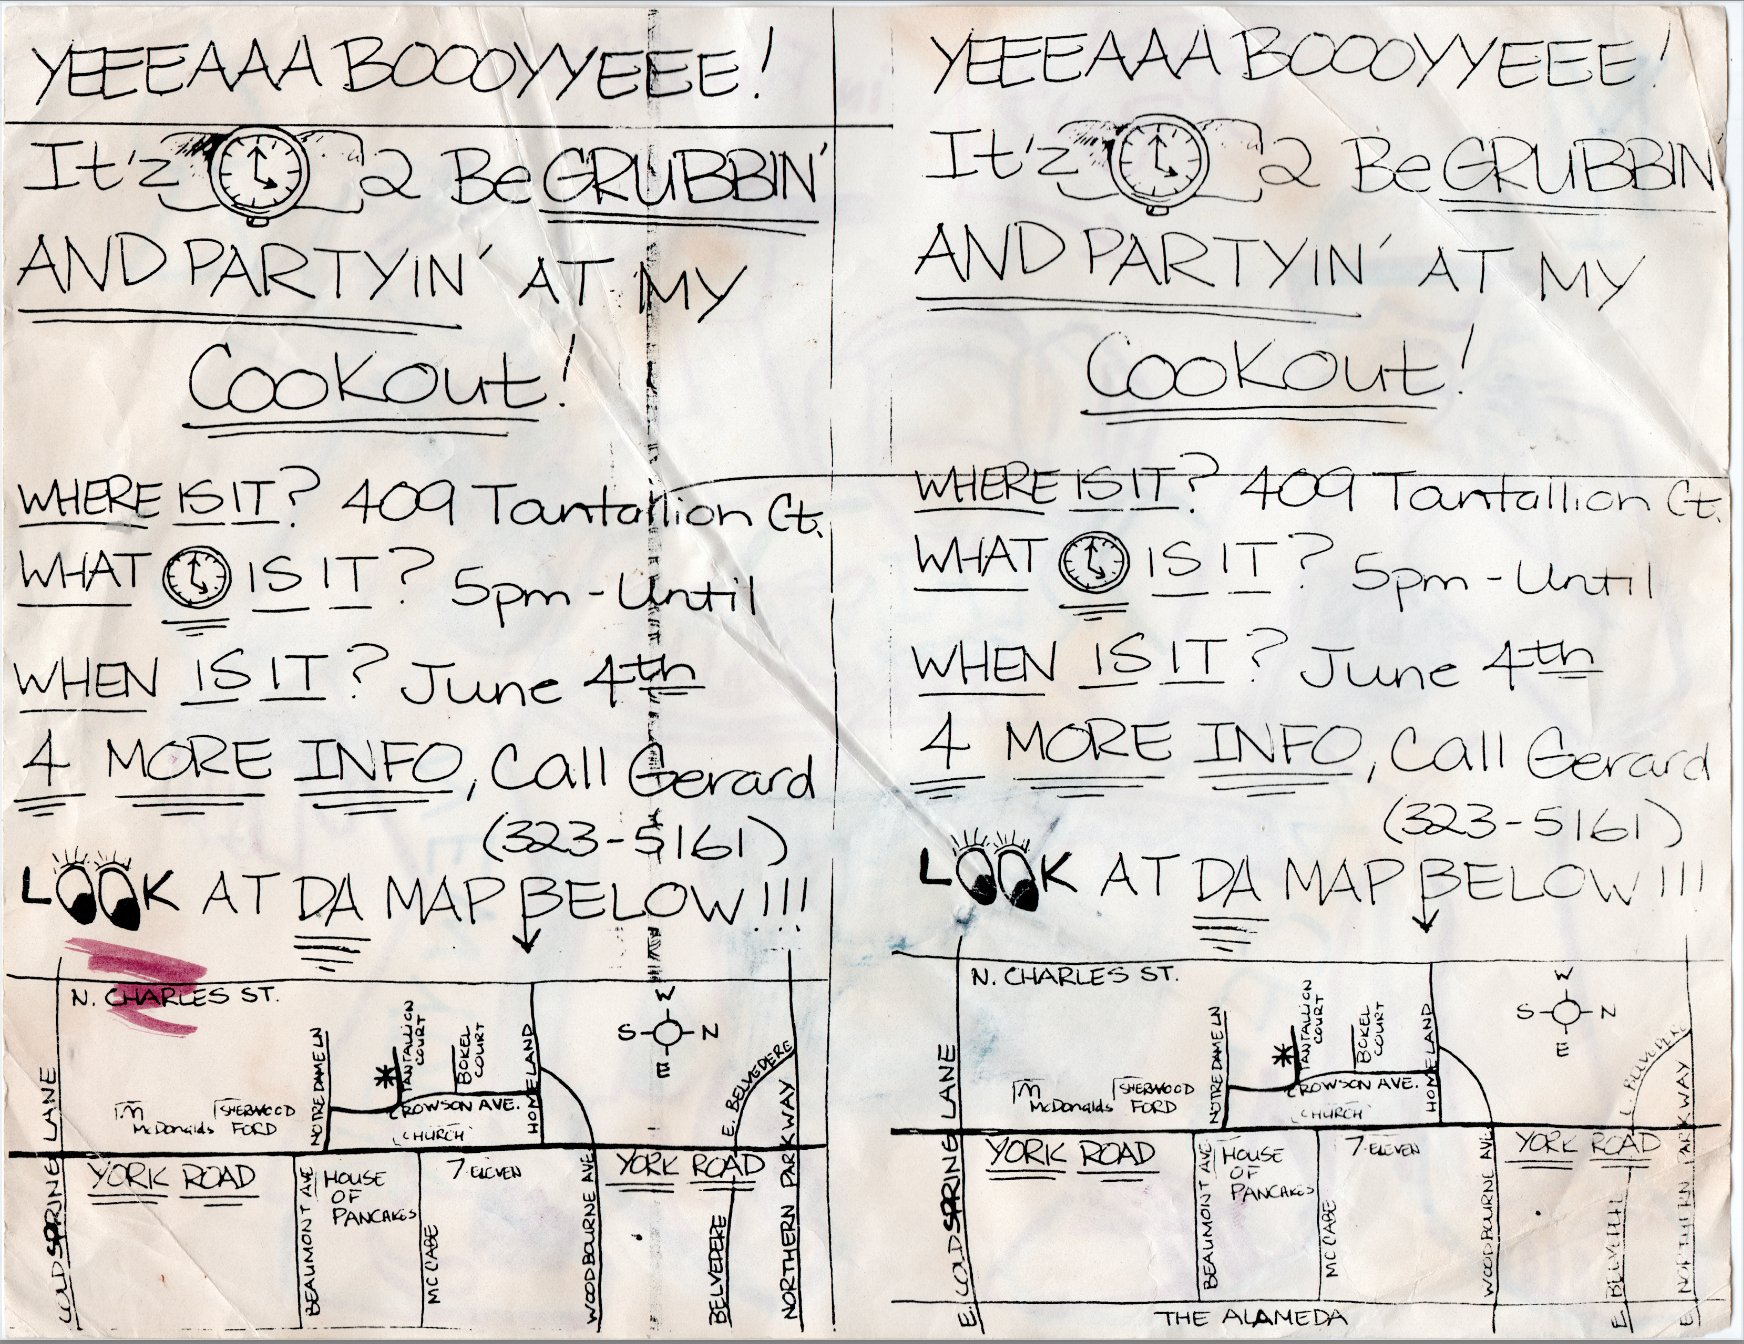 YEEEAAA BOOOYYEEE!
It'z 2 Be GRUBBIN'
AND PARTYIN' AT MY
COOKOUT!
WHERE IS IT? 409 Tantallion Ct.
WHAT IS IT? 5pm - Until
WHEN IS IT? June 4th
4 MORE INFO, Call Gerard
(323-5161)
LOOK AT DA MAP BELOW!!!
N. CHARLES ST.
COLDSPRING LANE
NOTRE DAME LN
TANTALLION COURT
BOKEL COURT
HOMELAND
W
S N
E
E. BELVEDERE
NORTHERN PARKWAY
M
McDonalds
SHERWOOD
FORD
CROWSON AVE.
CHURCH
YORK ROAD
YORK ROAD
BEAUMONT AVE
HOUSE
OF
PANCAKES
MCCABE
7-ELEVEN
WOODBOURNE AVE
BELVEDERE
YEEEAAA BOOOYYEEE!
It'z 2 Be GRUBBIN
AND PARTYIN' AT MY
COOKOUT!
WHERE IS IT? 409 Tantallion Ct.
WHAT IS IT? 5pm - Until
WHEN IS IT? June 4th
4 MORE INFO, Call Gerard
(323-5161)
LOOK AT DA MAP BELOW!!!
N. CHARLES ST.
E. COLDSPRING LANE
NOTRE DAME LN
TANTALLION COURT
BOKEL COURT
HOMELAND
W
S N
E
E. BELVEDERE
E NORTHERN PARKWAY
M
McDonalds
SHERWOOD
FORD
CROWSON AVE.
CHURCH
YORK ROAD
YORK ROAD
BEAUMONT AVE
HOUSE
OF
PANCAKES
MCCABE
7-ELEVEN
WOODBOURNE AVE
E BELVEDERE
THE ALAMEDA